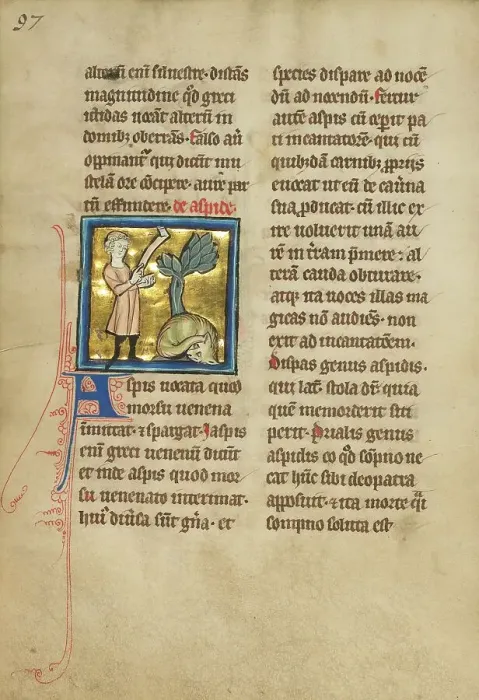 97
alterū enī silvestre· distās
magnitudine qd̄ greci
ictidas uocāt alterū in
domibꝫ oberrās· falso aūt
oppinant᷑ qui dicūt mu
stelā ore cōcipere· aure par
tū effundere· de aspide·
Aspis uocata quod
morsu uenena
īmittat· ⁊ spargat· Iaspis
enī greci uenenū dicūt
et inde aspis quod mor
su uenenato interimat·
huiꝰ diuīsa sūt gn̄a· et
species dispare ad nocē
dū ad nocendū· fertur
autē aspis cū ceꝑit pa
ti incantatorē· qui eū
quibꝰdā carnibꝫ ꝓpriis
euocat ut eū de cauīna
sua ꝓducat· cū illic ex
ire noluerit unā au
rē in t̄ram p̄mere· al
terā cauda obturare·
atqꝫ ita uoces illas ma
gicas nō audiēs· non
exit ad incantatōem·
Dispas genus aspidis·
qui lat̄· stola dr̄ quia
quē memorderit siti
perit· Prialis genus
aspidis eo qd̄ sōpno ne
cat hūc sibi cleopatra
apposuit· ⁊ ita morte q̄i
sompno soluta est·